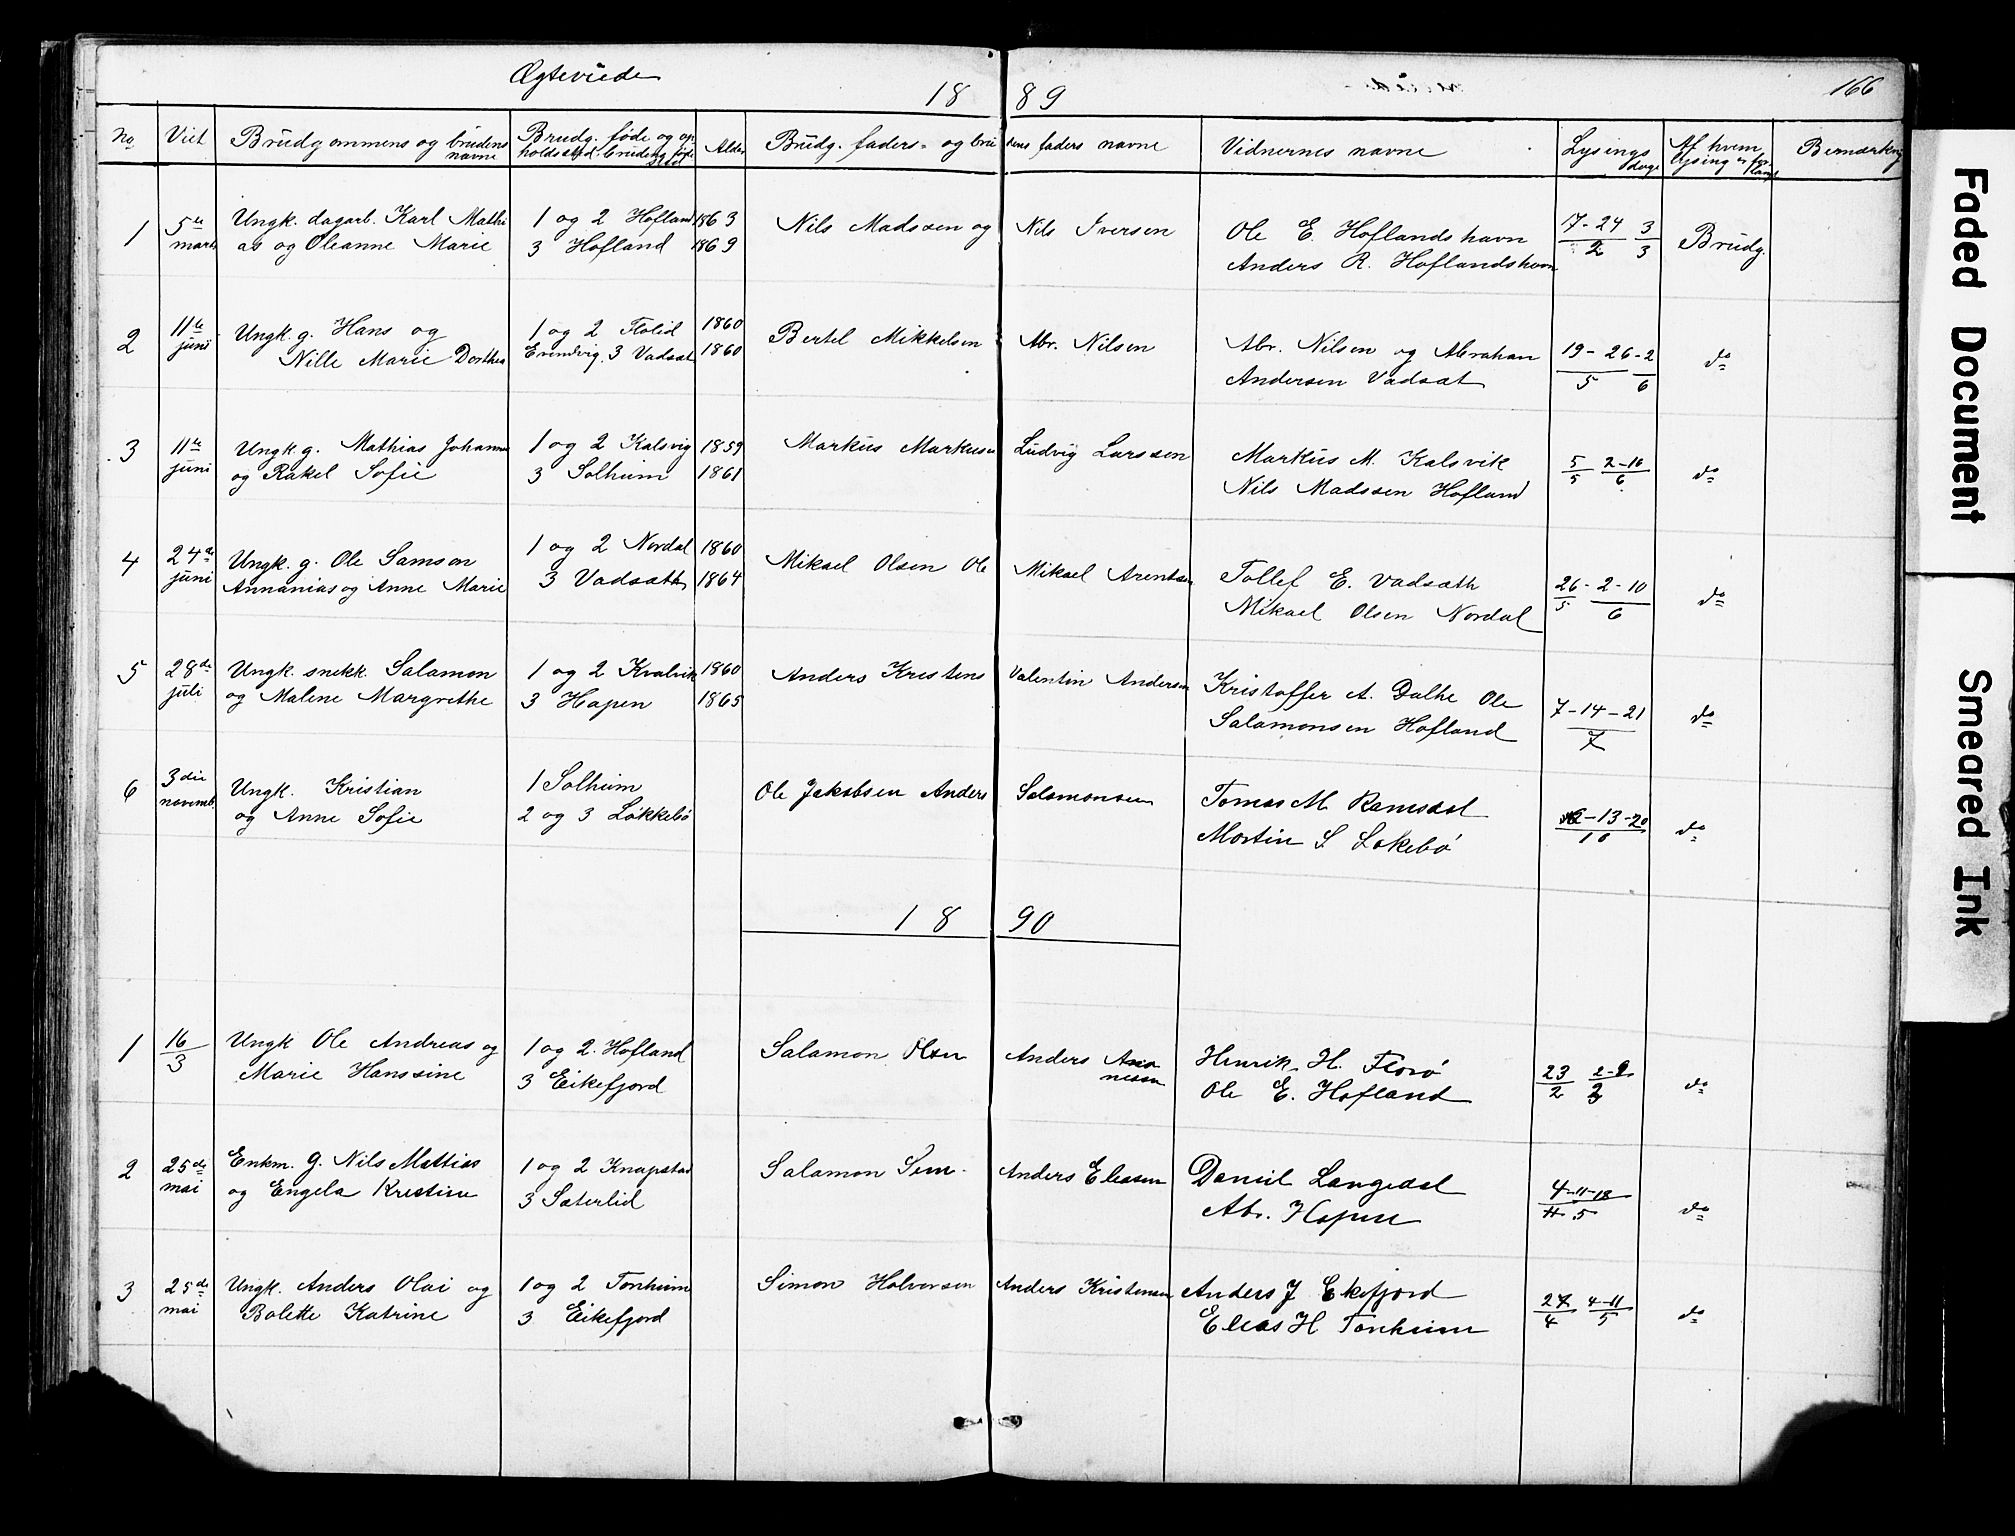 Ægteviede
18 89
166
No
Viet
Brudgommens og brudens navne
Brudg. føde og opholdsstd. brudens føde
Alder
Brudg. faders- og brudens faders navne
Vidnernes navne
Lysings dage
Af hvem lysing er forlangt
Bemærkning
1 5te marts Ungk. dagarb. Karl Mathi 1 og 2 Hofland 1863 Nils Madssen og Nils Iversen Ole E. Hoflandshavn 17-24 3 Brudg.
as og Oleanne Marie 3 Hofland 1869 Anders R. Hoflandshavn 2 3
2 11te juni Ungk. g. Hans og 1 og 2 Flolid 1860 Bertel Mikkelsen Abr. Nilsen Abr. Nilsen og Abraham 19-26-2 do
Nille Marie Dorthea 3 Vadsæt 1860 Andersen Vadsæt 5 6
3 11te juni Ungk. g. Mathias Johannes 1 og 2 Kalsvig 1859 Markus Markusen Ludvig Larssen Markus M. Kalsvik 5 2-16 do
og Rakel Sofie 3 Solheim 1861 Nils Madssen Hofland 5 6
4 24de juni Ungk. g. Ole Samson 1 og 2 Nordal 1860 Mikael Olsen Ole Mikael Arentsen Tollef E. Vadsæth 26-2-10 do
Annanias og Anne Marie 3 Vadsæth 1864 Mikael Olsen Nordal 5 6
5 28de juli Ungk. snekk. Salamon 1 og 2 Kvalvik 1860 Anders Kristens Valentin Andersen Kristoffer A. Dalhe Ole 7-14-21 do
og Malene Margrethe 3 Hopen 1865 Salamonsen Hofland 7
6 3die novemb. Ungk. Kristian 1 Solheim Ole Jakobsen Anders Salomonsen Tomas M. Ramsdal -13-20 do
og Anne Sofie 2 og 3 Løkkebø Mortin S Løkebø 10
18 90
1 16 Ungk Ole Andreas og 1 og 2. Hofland Salamon Olsen Anders Ananiesen Henrik H. Florø 23 2-9 do
3 Marie Hanssine 3 Eikefjord Ole E. Hofland 2 3
2 25de mai Enkm. g. Nils Mattias 1 og 2 Knapstad Salamon Sim. Anders Eleasen Daniel Langedal 4-11-18 do
og Engela Kristine 3 Sæterlid Abr. Hopen 5
3 25de mai Ungk. Anders Olai og 1 og 2 Tonheim Simon Halvorsen Anders Kristensen Anders J Ekefjord 27 4-11 do
Bolette Katrine 3 Eikefjord Eleas H Tonheim 4 5
Faded Document
Smeared Ink